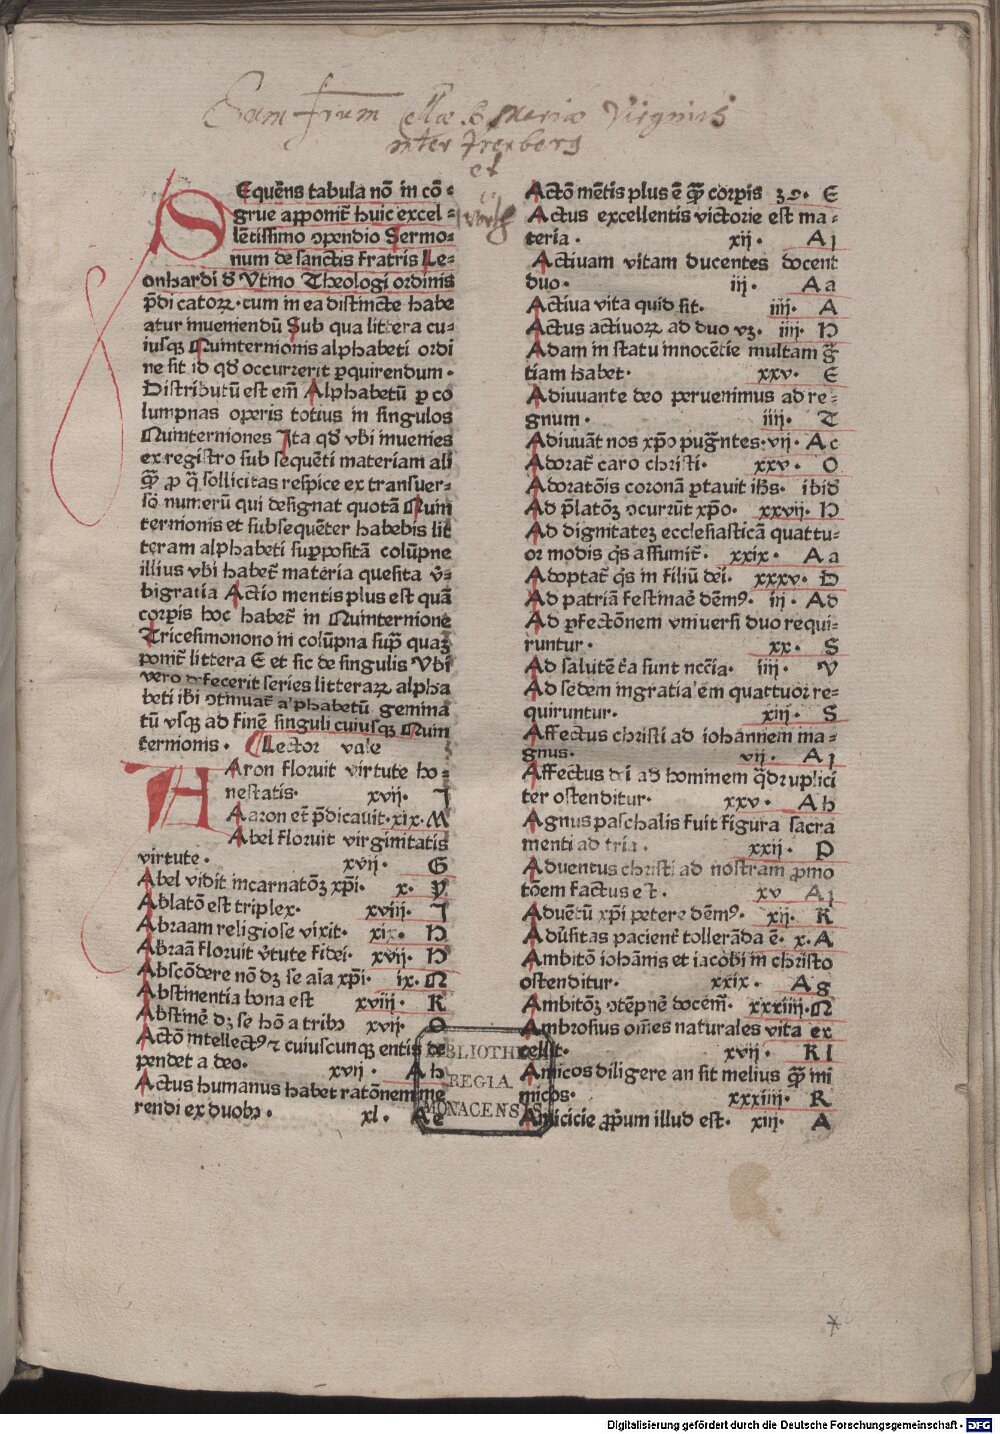 Sum fr̄um Cellæ B. Mariæ Virginis
inter Freyberg
et
SEquēns tabula nō in cō-
grue apponit᷑ huic excel-
lētissimo ɔpendio Sermo-
num de sanctis fratris Le-
onhardi d' Vtino Theologi ordinis
p̄dicatoꝝ. cum in ea distincte habe
atur inueniendū Sub qua littera cu-
iusqꝫ Quinternionis alphabeti ordi
ne sit id qd' occurrerit ꝑquirendum.
Distributū est em̄ Alphabetū ꝑ co
lumpnas operis totius in singulos
Quinterniones Ita qd' vbi inuenies
ex registro sub sequēti materiam ali
qua̅ ꝑ q̄ sollicitas respice ex transuer-
so numerū qui designat quotā Quin
ternionis et subsequēter habebis lit
teram alphabeti supꝑpositā colūpne
illius vbi habet᷑ materia quesita v̄-
bigratia Actio mentis plus est quā
corꝑis hoc habet᷑ in Quinternione
Tricesimonono in colūpna sup̄ quaꝫ
ponit᷑ littera E et sic de singulis Vbi
vero defecerit series litteraꝝ alpha
beti ibi ɔtinuat᷑ alphabetū gemina
tū vsqꝫ ad finē singuli cuiusqꝫ Quin
ternionis. Lector vale
AAron floruit virtute ho-
nestatis. xvij. I
Aaron et᷑ p̄dicauit. xix. M
Abel floruit virginitatis
virtute. xvij. G
Abel vidit incarnatōꝫ xp̄i. x. y
Ablatō est triplex. xviij. I
Abraam religiose vixit. xix. H
Abraā floruit v̄tute fidei. xvij. H
Abscōdere nō dꝫ se aīa xp̄i. ix. N
Abstinentia bona est xviij. K
Abstinē dꝫ se hō a tribꝰ xvij. O
Actō intellectꝰ ⁊ cuiuscunqꝫ entis de
pendet a deo. xvij. Ah
Actus humanus habet ratōnem me
rendi ex duobꝰ. xl. Ae
Actō mētis plus ē qua̅ corꝑis 39. E
Actus excellentis victorie est ma-
teria. xij. Aj
Actiuam vitam ducentes docent
duo. iij. Aa
Actiua vita quid sit. iiij. A
Actus actiuoꝝ ad duo vꝫ. iiij. H
Adam in statu innocētie multam g̃
tiam habet. xxv. E
Adiuuante deo peruenimus ad re-
gnum. iiij. T
Adiuuāt nos xp̄o pug̃ntes. vij. Ac
Adorat᷑ caro christi. xxv. O
Adoratōis coronā ꝑtauit ih̄s. ibid
Ad p̄latōꝫ ɔcurrūt xp̄o. xxvij. H
Ad dignitateꝫ ecclesiasticā quattu-
or modis q̄s assumit᷑. xxix. Aa
Adoptat᷑ q̄s in filiū dei. xxxv. D
Ad patriā festinaē dēmꝰ. iij. Ad
Ad ꝑfectōnem vniuersi duo requi-
runtur. xx. S
Ad salutē t̄ia sunt nccīa. iiij. V
Ad sedem ingratia'em quattuor re-
quiruntur. xiij. S
Affectus christi ad iohannem ma-
gnus. vij. Aj
Affectus dei ad hominem q̄druplici
ter ostenditur. xxv. Ah
Agnus paschalis fuit figura sacra
menti ad tria. xxij. P
Aduentus christi ad nostram ꝓmo
tōem factus est. xv Aj
Aduētū xp̄i petere dēmꝰ. xij. K
Adūsitas pacient᷑ tollerāda ē. x. A
Ambitō iohānis et iacobi in christo
ostenditur. xxix. Ag
Ambitōꝫ ɔtēpnē docem᷑. xxxiiij. N
Ambrosius om̄es naturales vita ex
cellit. xvij. Kl
Amicos diligere an sit melius qua̅ ini
micos. xxxiiij. R
Amicicie ꝓpum illud est. xiij. A
BIBLIOTHECA
REGIA
MONACENSIS
Digitalisierung gefördert durch die Deutsche Forschungsgemeinschaft - DFG